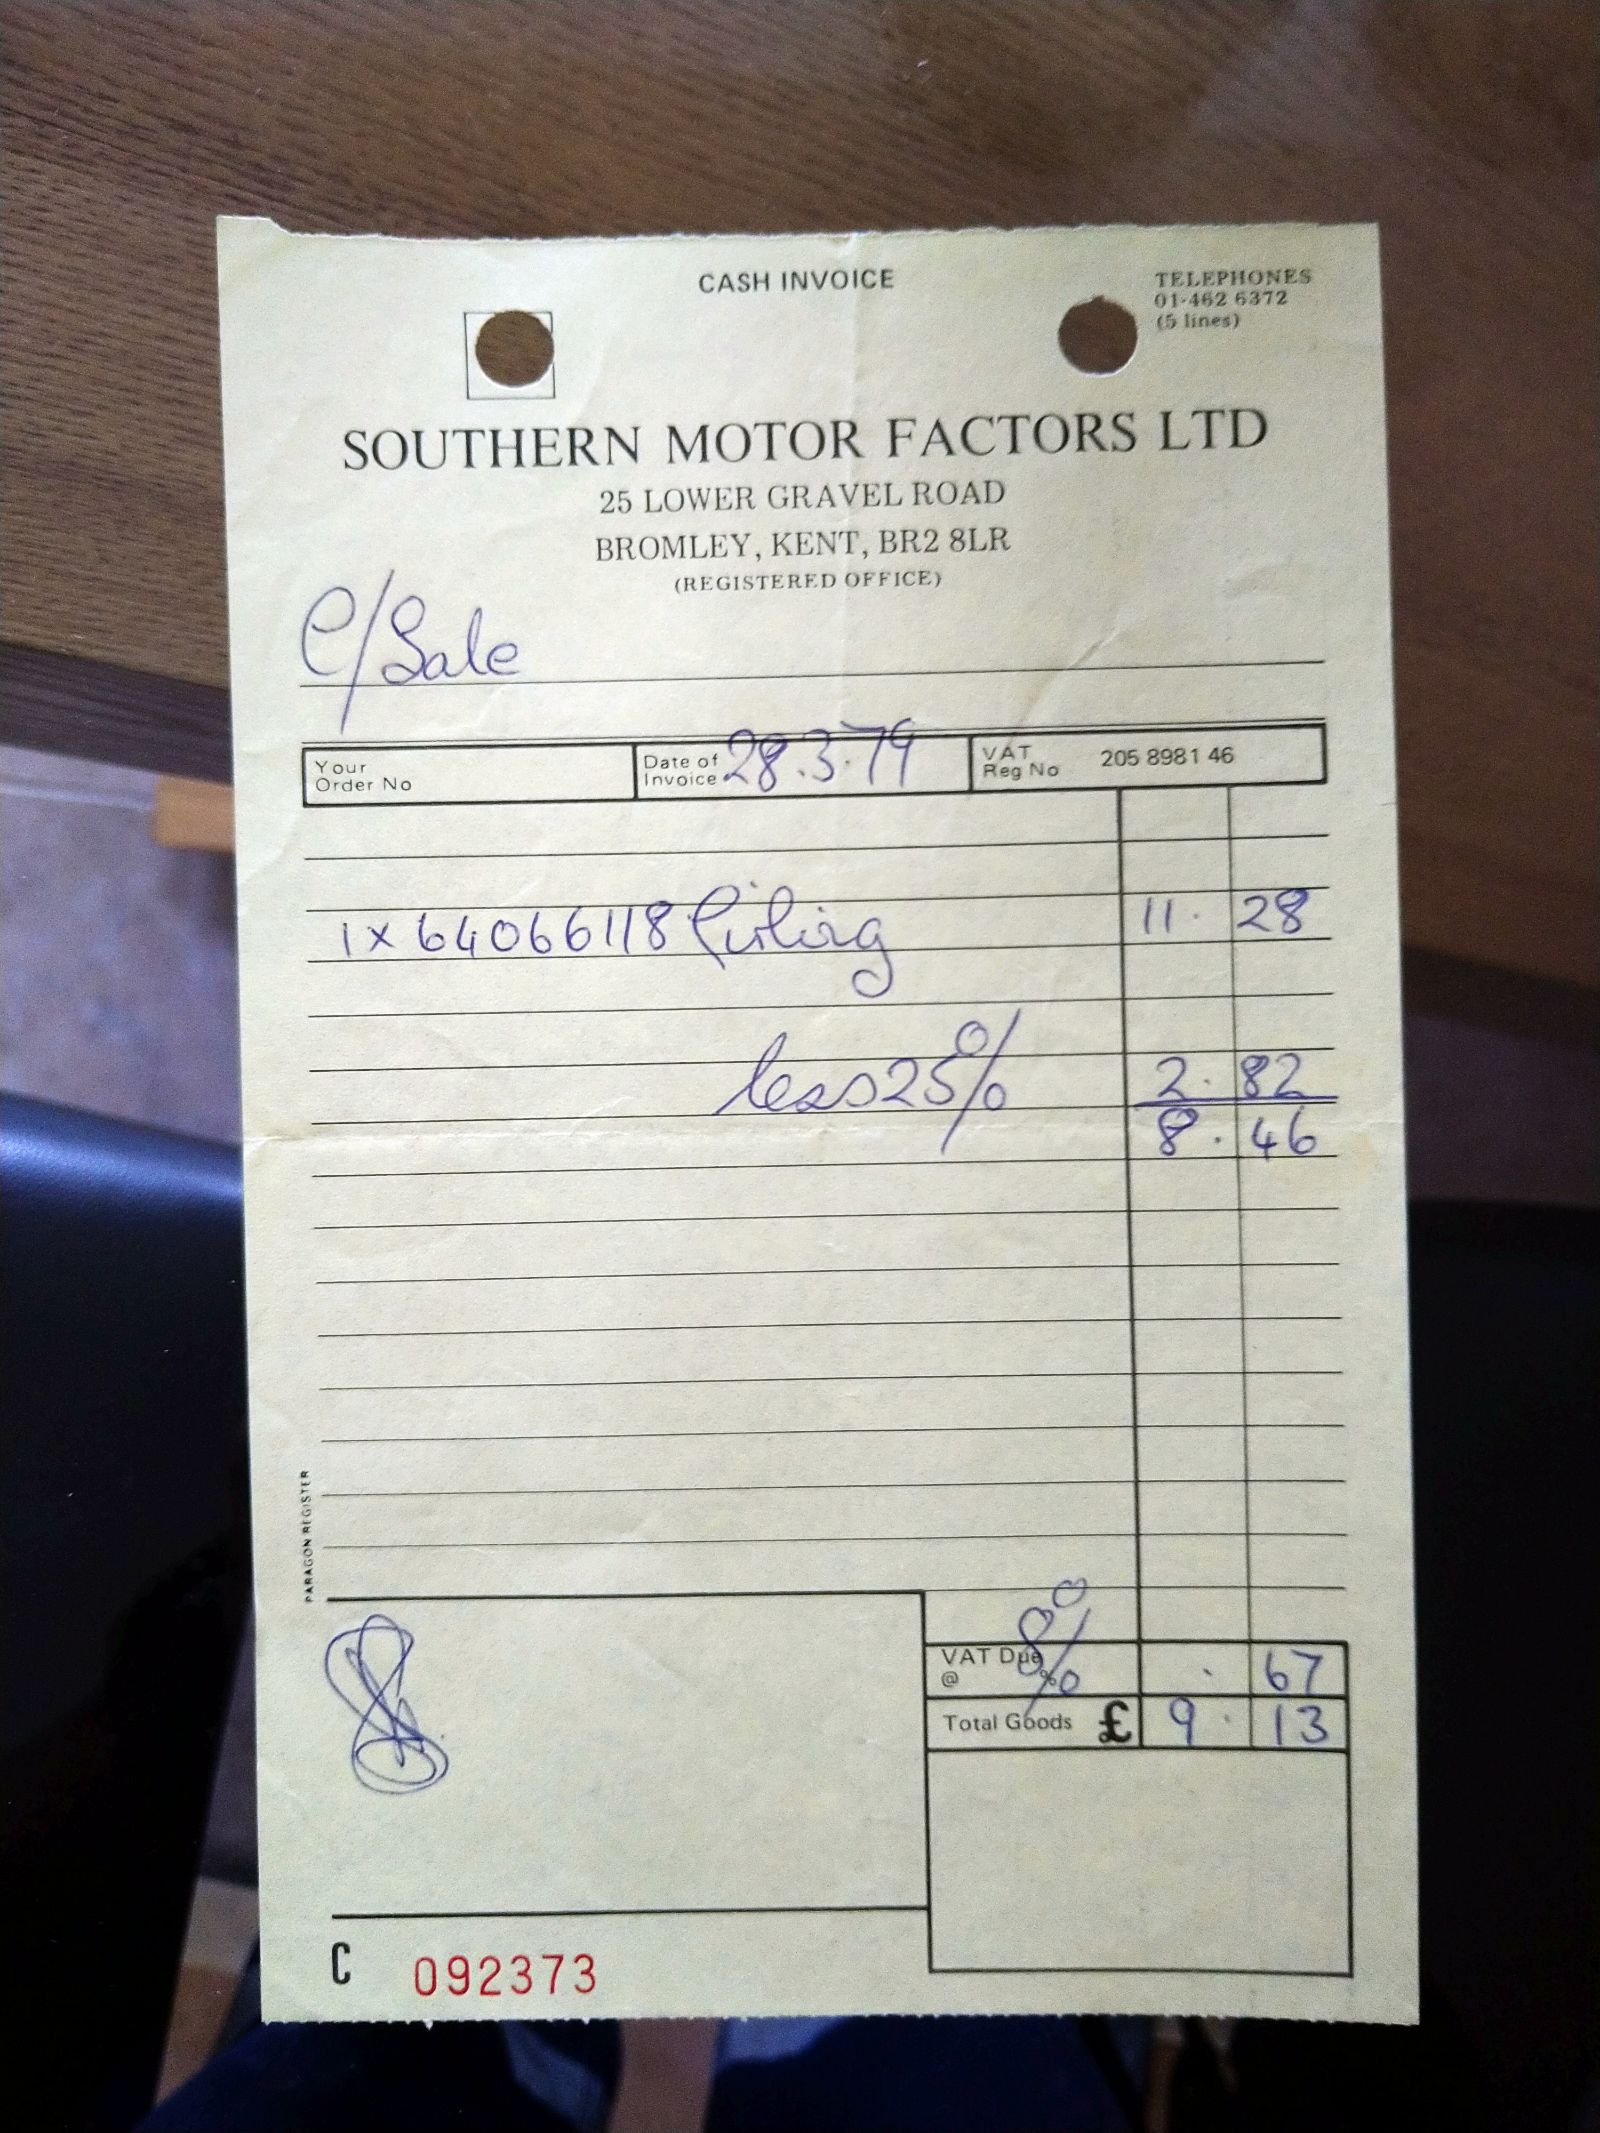 CASH INVOICE
TELEPHONES
01-462 6372
(5 lines)
SOUTHERN MOTOR FACTORS LTD
25 LOWER GRAVEL ROAD
BROMLEY, KENT, BR2 8LR
(REGISTERED OFFICE)
C/Sale
Your Order No
Date of Invoice 28.3.79
VAT Reg No 205 8981 46
1 x 64066118 11. 28
less 25% 2. 82
8. 46
PARAGON REGISTER
VAT Due @ % 8% . 67
Total Goods £ 9. 13
C 092373